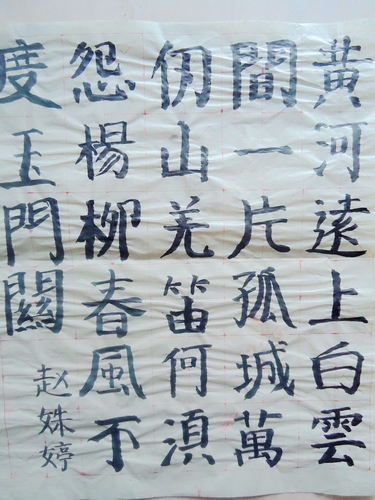 黄河遠上白雲
間一片孤城萬
仞山羌笛何湏
怨楊柳春風不
度玉門關
赵姝婷